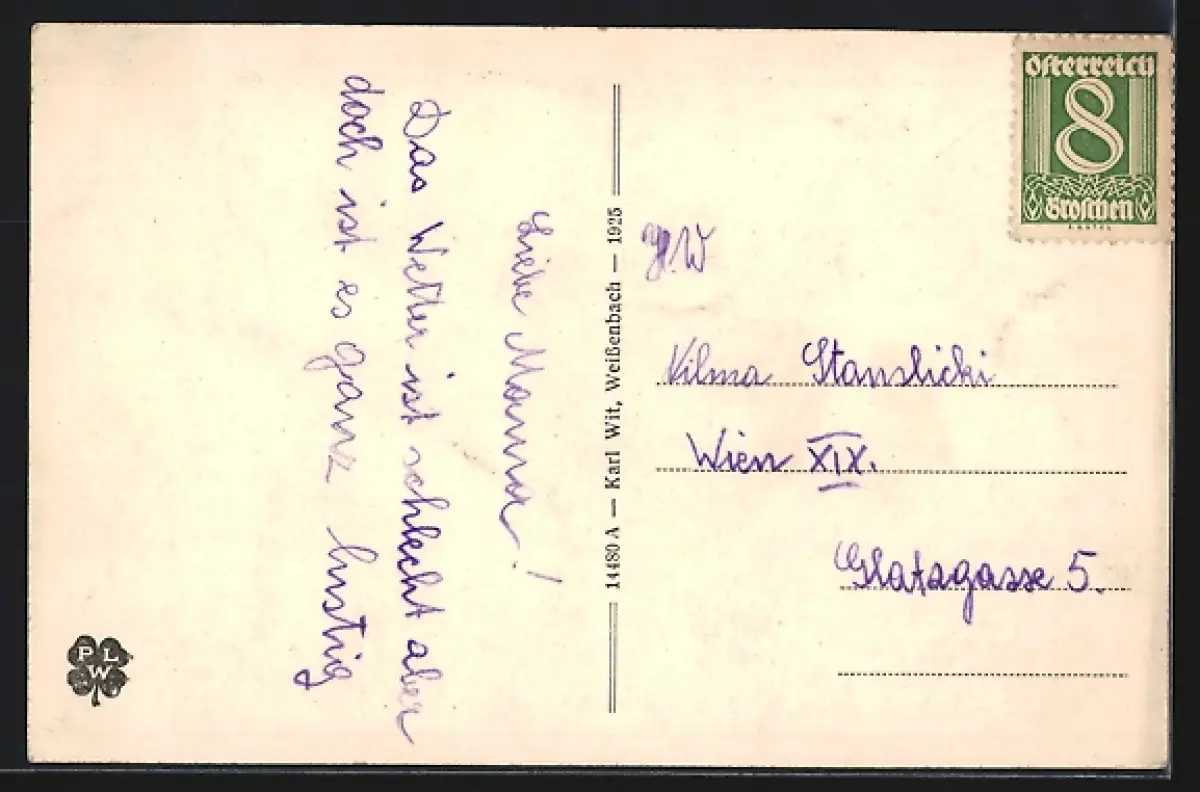 Liebe Mama!
Das Wetter ist schlecht aber
doch ist es ganz lustig
14480 A — Karl Wit, Weißenbach — 1925
Österreich
8
Groschen
H.W
Vilma Stanslicki
Wien XIX.
Glatzgasse 5.
P L
W